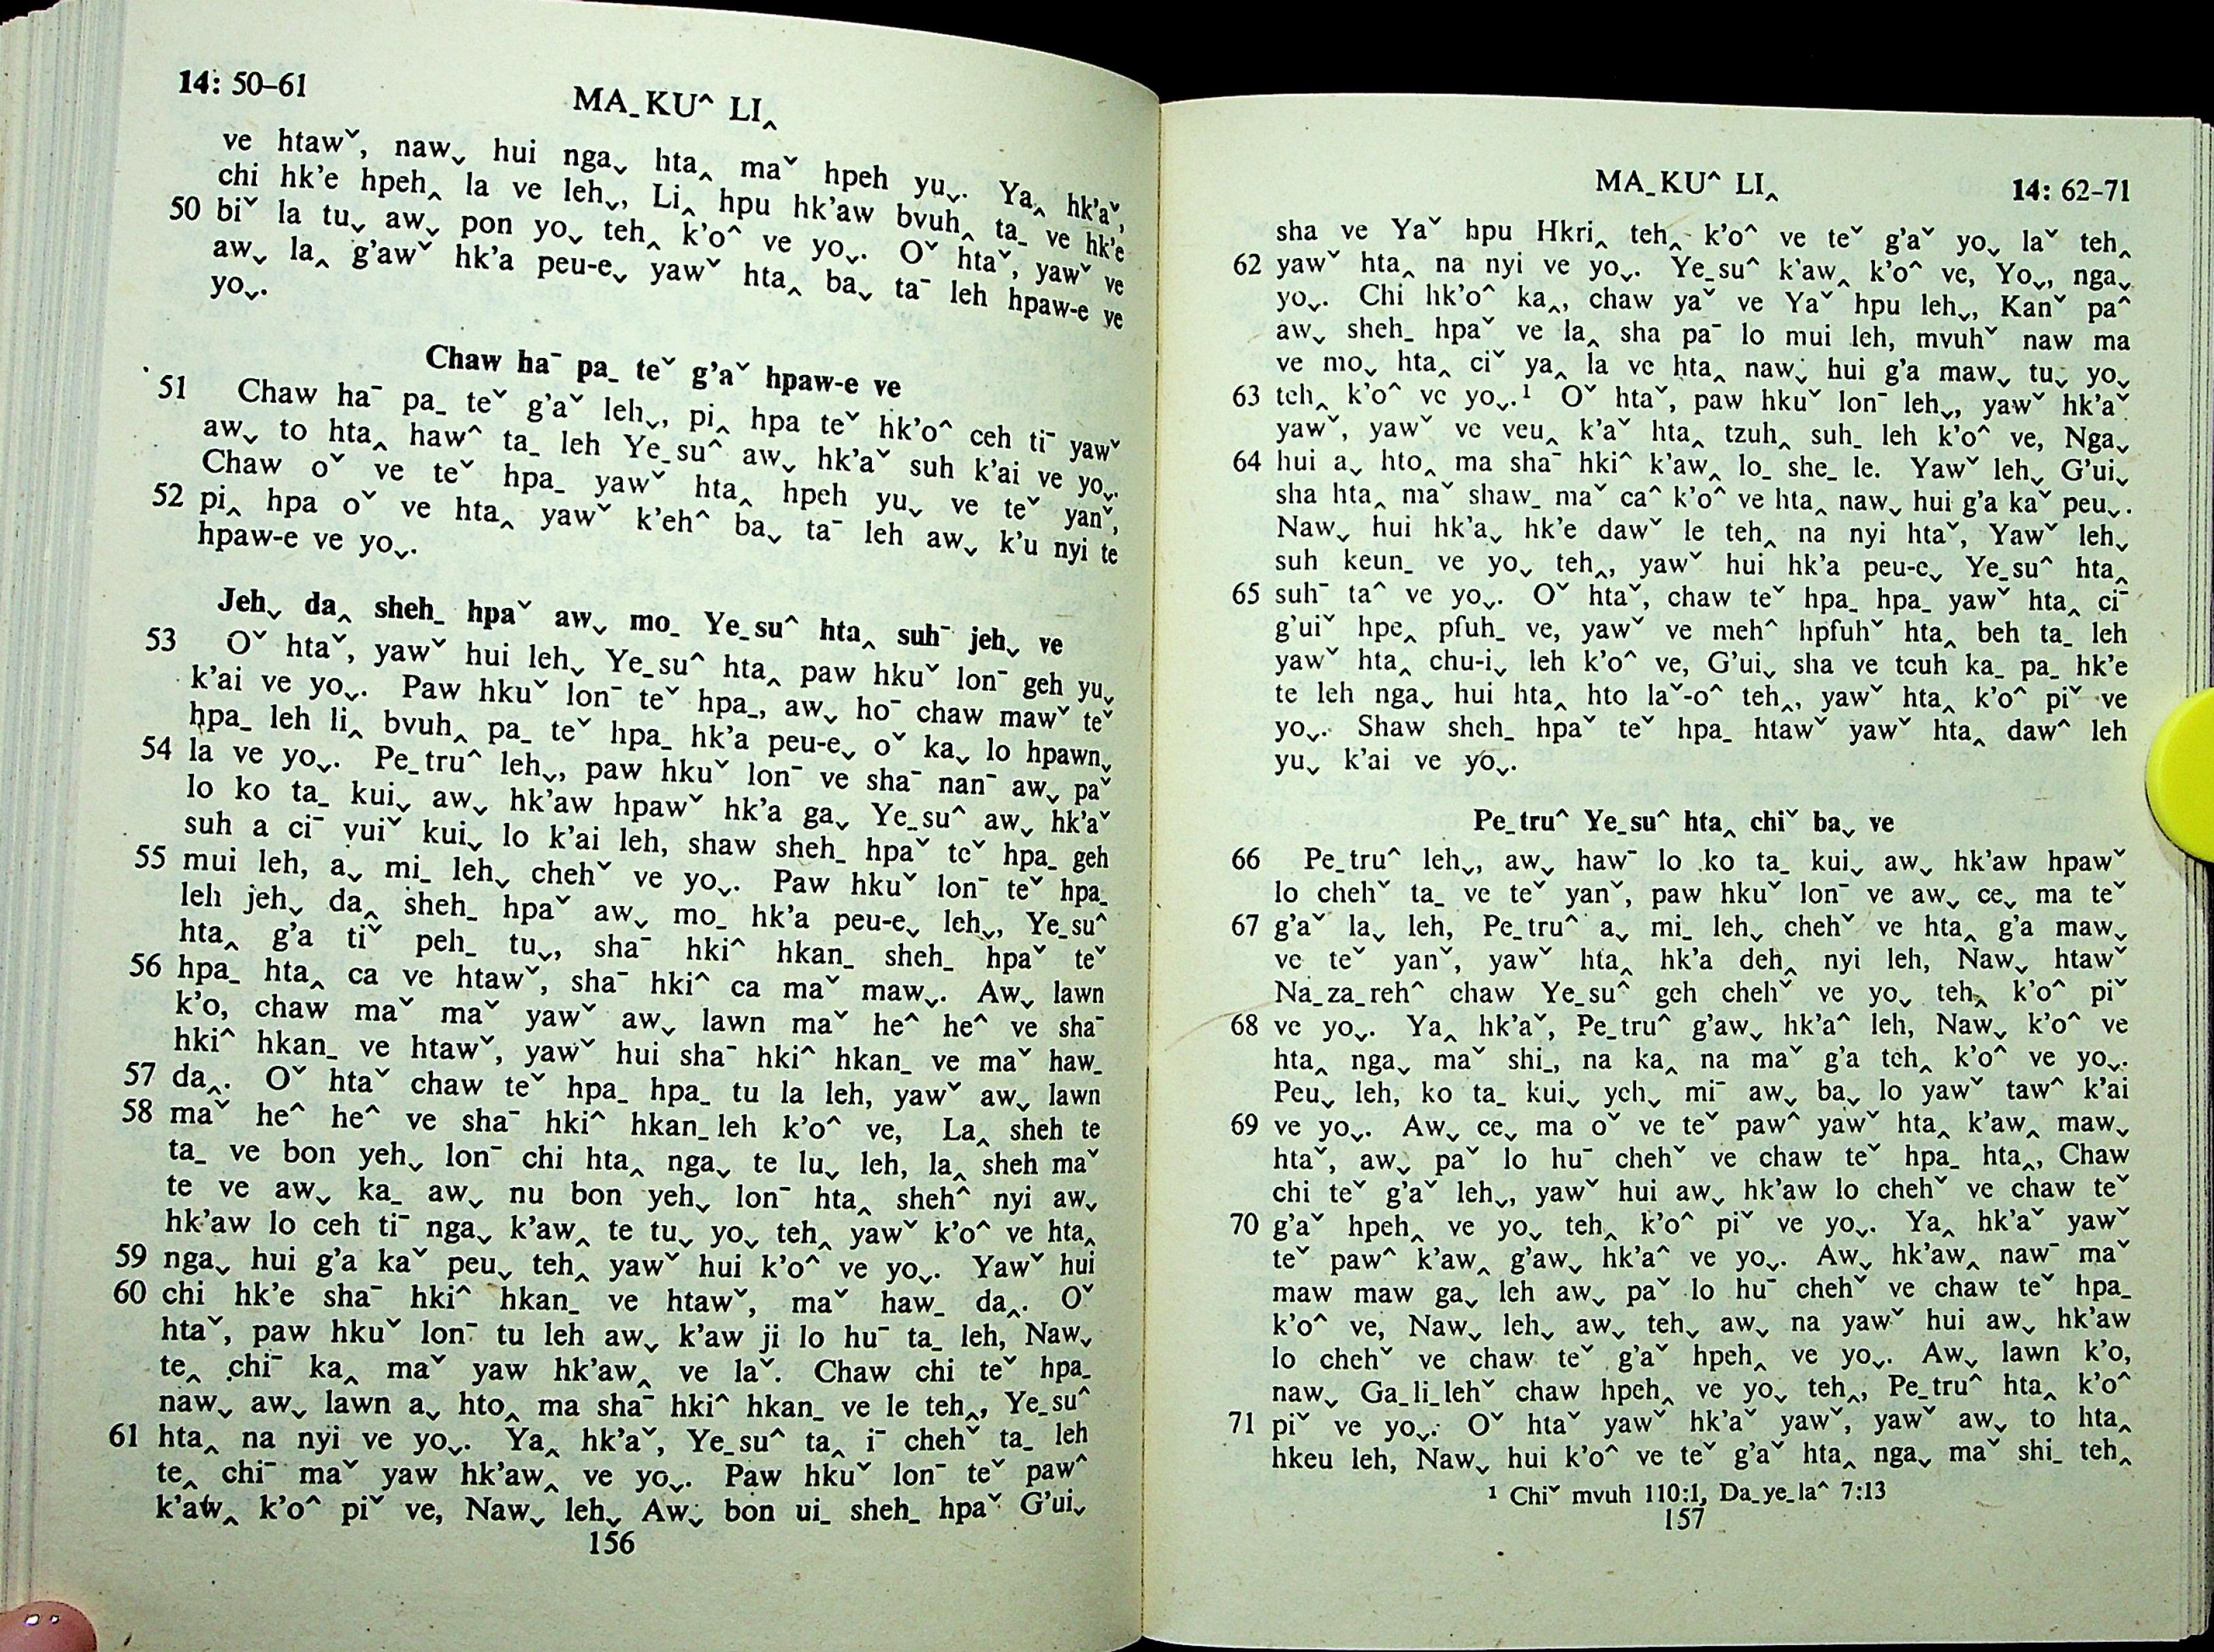 14: 50–61
MA_KU^ LI‸
ve htawˇ, naw⌄ hui nga⌄ hta‸ maˇ hpeh yu⌄. Ya‸ hk'aˇ,
chi hk'e hpeh‸ la ve leh⌄, Li‸ hpu hk'aw bvuh‸ ta_ ve hk'e
50 biˇ la tu⌄ aw⌄ pon yo⌄ teh‸ k'o^ ve yo⌄. Oˇ htaˇ, yawˇ ve
aw⌄ la‸ g'awˇ hk'a peu-e⌄ yawˇ hta‸ ba⌄ taˉ leh hpaw-e ve
yo⌄.
Chaw haˉ pa_ teˇ g'aˇ hpaw-e ve
51 Chaw haˉ pa_ teˇ g'aˇ leh⌄, pi‸ hpa teˇ hk'o^ ceh tiˉ yawˇ
aw⌄ to hta‸ haw^ ta_ leh Ye_su^ aw⌄ hk'aˇ suh k'ai ve yo⌄.
Chaw oˇ ve teˇ hpa_ yawˇ hta‸ hpeh yu⌄ ve teˇ yanˇ,
52 pi‸ hpa oˇ ve hta‸ yawˇ k'eh^ ba⌄ taˉ leh aw⌄ k'u nyi te
hpaw-e ve yo⌄.
Jeh⌄ da‸ sheh_ hpaˇ aw⌄ mo_ Ye_su^ hta‸ suhˉ jeh⌄ ve
53 Oˇ htaˇ, yawˇ hui leh⌄ Ye_su^ hta‸ paw hkuˇ lonˉ geh yu⌄
k'ai ve yo⌄. Paw hkuˇ lonˉ teˇ hpa_, aw⌄ hoˉ chaw mawˇ teˇ
hpa_ leh li‸ bvuh‸ pa_ teˇ hpa_ hk'a peu-e⌄ oˇ ka⌄ lo hpawn⌄
54 la ve yo⌄. Pe_tru^ leh⌄, paw hkuˇ lonˉ ve shaˉ nanˉ aw⌄ paˇ
lo ko ta_ kui⌄ aw⌄ hk'aw hpawˇ hk'a ga⌄ Ye_su^ aw⌄ hk'aˇ
suh a ciˉ vuiˇ kui⌄ lo k'ai leh, shaw sheh_ hpaˇ teˇ hpa_ geh
55 mui leh, a⌄ mi_ leh⌄ chehˇ ve yo⌄. Paw hkuˇ lonˉ teˇ hpa_
leh jeh⌄ da‸ sheh_ hpaˇ aw⌄ mo_ hk'a peu-e⌄ leh⌄, Ye_su^
hta‸ g'a tiˇ peh_ tu⌄, shaˉ hki^ hkan_ sheh_ hpaˇ teˇ
56 hpa_ hta‸ ca ve htawˇ, shaˉ hki^ ca maˇ maw⌄. Aw⌄ lawn
k'o, chaw maˇ maˇ yawˇ aw⌄ lawn maˇ he^ he^ ve shaˉ
hki^ hkan_ ve htawˇ, yawˇ hui shaˉ hki^ hkan_ ve maˇ haw_
57 da‸. Oˇ htaˇ chaw teˇ hpa_ hpa_ tu la leh, yawˇ aw⌄ lawn
58 maˇ he^ he^ ve shaˉ hki^ hkan_leh k'o^ ve, La‸ sheh te
ta_ ve bon yeh⌄ lonˉ chi hta‸ nga⌄ te lu⌄ leh, la‸ sheh maˇ
te ve aw⌄ ka_ aw⌄ nu bon yeh⌄ lonˉ hta‸ sheh^ nyi aw⌄
hk'aw lo ceh tiˉ nga⌄ k'aw‸ te tu⌄ yo⌄ teh‸ yawˇ k'o^ ve hta‸
59 nga⌄ hui g'a kaˇ peu⌄ teh‸ yawˇ hui k'o^ ve yo⌄. Yawˇ hui
60 chi hk'e shaˉ hki^ hkan_ ve htawˇ, maˇ haw_ da‸. Oˇ
htaˇ, paw hkuˇ lonˉ tu leh aw⌄ k'aw ji lo huˉ ta_ leh, Naw⌄
te‸ chiˉ ka‸ maˇ yaw hk'aw‸ ve laˇ. Chaw chi teˇ hpa_
naw⌄ aw⌄ lawn a⌄ hto‸ ma shaˉ hki^ hkan_ ve le teh‸, Ye_su^
61 hta‸ na nyi ve yo⌄. Ya‸ hk'aˇ, Ye_su^ ta‸ iˉ chehˇ ta_ leh
te‸ chiˉ maˇ yaw hk'aw‸ ve yo⌄. Paw hkuˇ lonˉ teˇ paw^
k'aw‸ k'o^ piˇ ve, Naw⌄ leh⌄ Aw⌄ bon ui_ sheh_ hpaˇ G'ui⌄
156
MA_KU^ LI‸
14: 62–71
sha ve Yaˇ hpu Hkri‸ teh‸ k'o^ ve teˇ g'aˇ yo⌄ laˇ teh‸
62 yawˇ hta‸ na nyi ve yo⌄. Ye_su^ k'aw‸ k'o^ ve, Yo⌄, nga⌄
yo⌄. Chi hk'o^ ka‸, chaw yaˇ ve Yaˇ hpu leh⌄, Kanˇ pa^
aw⌄ sheh_ hpaˇ ve la‸ sha paˉ lo mui leh, mvuhˇ naw ma
ve mo⌄ hta‸ ciˇ ya‸ la ve hta‸ naw⌄ hui g'a maw⌄ tu⌄ yo⌄
63 teh‸ k'o^ ve yo⌄.¹ Oˇ htaˇ, paw hkuˇ lonˉ leh⌄, yawˇ hk'aˇ
yawˇ, yawˇ ve veu‸ k'aˇ hta‸ tzuh‸ suh_ leh k'o^ ve, Nga⌄
64 hui a⌄ hto‸ ma shaˉ hki^ k'aw‸ lo_ she_ le. Yawˇ leh⌄ G'ui⌄
sha hta‸ maˇ shaw_ maˇ ca^ k'o^ ve hta‸ naw⌄ hui g'a kaˇ peu⌄.
Naw⌄ hui hk'a⌄ hk'e dawˇ le teh‸ na nyi htaˇ, Yawˇ leh⌄
suh keun_ ve yo⌄ teh‸, yawˇ hui hk'a peu-e⌄ Ye_su^ hta‸
65 suhˉ ta^ ve yo⌄. Oˇ htaˇ, chaw teˇ hpa_ hpa_ yawˇ hta‸ ciˉ
g'uiˇ hpe‸ pfuh_ ve, yawˇ ve meh^ hpfuhˇ hta‸ beh ta_ leh
yawˇ hta‸ chu-i⌄ leh k'o^ ve, G'ui⌄ sha ve tcuh ka_ pa_ hk'e
te leh nga⌄ hui hta‸ hto laˇ-o^ teh‸, yawˇ hta‸ k'o^ piˇ ve
yo⌄. Shaw sheh_ hpaˇ teˇ hpa_ htawˇ yawˇ hta‸ daw^ leh
yu⌄ k'ai ve yo⌄.
Pe_tru^ Ye_su^ hta‸ chiˇ ba⌄ ve
66 Pe_tru^ leh⌄, aw⌄ hawˉ lo ko ta_ kui⌄ aw⌄ hk'aw hpawˇ
lo chehˇ ta_ ve teˇ yanˇ, paw hkuˇ lonˉ ve aw⌄ ce⌄ ma teˇ
67 g'aˇ la⌄ leh, Pe_tru^ a⌄ mi_ leh⌄ chehˇ ve hta‸ g'a maw⌄
ve teˇ yanˇ, yawˇ hta‸ hk'a deh‸ nyi leh, Naw⌄ htawˇ
Na_za_reh^ chaw Ye_su^ geh chehˇ ve yo⌄ teh‸ k'o^ piˇ
68 ve yo⌄. Ya‸ hk'aˇ, Pe_tru^ g'aw⌄ hk'a^ leh, Naw⌄ k'o^ ve
hta‸ nga⌄ maˇ shi_, na ka‸ na maˇ g'a teh‸ k'o^ ve yo⌄.
Peu⌄ leh, ko ta_ kui⌄ yeh⌄ miˉ aw⌄ ba⌄ lo yawˇ taw^ k'ai
69 ve yo⌄. Aw⌄ ce⌄ ma oˇ ve teˇ paw^ yawˇ hta‸ k'aw‸ maw⌄
htaˇ, aw⌄ paˇ lo huˉ chehˇ ve chaw teˇ hpa_ hta‸, Chaw
chi teˇ g'aˇ leh⌄, yawˇ hui aw⌄ hk'aw lo chehˇ ve chaw teˇ
70 g'aˇ hpeh‸ ve yo⌄ teh‸ k'o^ piˇ ve yo⌄. Ya‸ hk'aˇ yawˇ
teˇ paw^ k'aw‸ g'aw⌄ hk'a^ ve yo⌄. Aw⌄ hk'aw‸ nawˉ maˇ
maw maw ga⌄ leh aw⌄ paˇ lo huˉ chehˇ ve chaw teˇ hpa_
k'o^ ve, Naw⌄ leh⌄ aw⌄ teh⌄ aw⌄ na yawˇ hui aw⌄ hk'aw
lo chehˇ ve chaw teˇ g'aˇ hpeh‸ ve yo⌄. Aw⌄ lawn k'o,
naw⌄ Ga_li_lehˇ chaw hpeh‸ ve yo⌄ teh‸, Pe_tru^ hta‸ k'o^
71 piˇ ve yo⌄. Oˇ htaˇ yawˇ hk'aˇ yawˇ, yawˇ aw⌄ to hta‸
hkeu leh, Naw⌄ hui k'o^ ve teˇ g'aˇ hta‸ nga⌄ maˇ shi_ teh‸
¹ Chiˇ mvuh 110:1, Da_ye_la^ 7:13
157